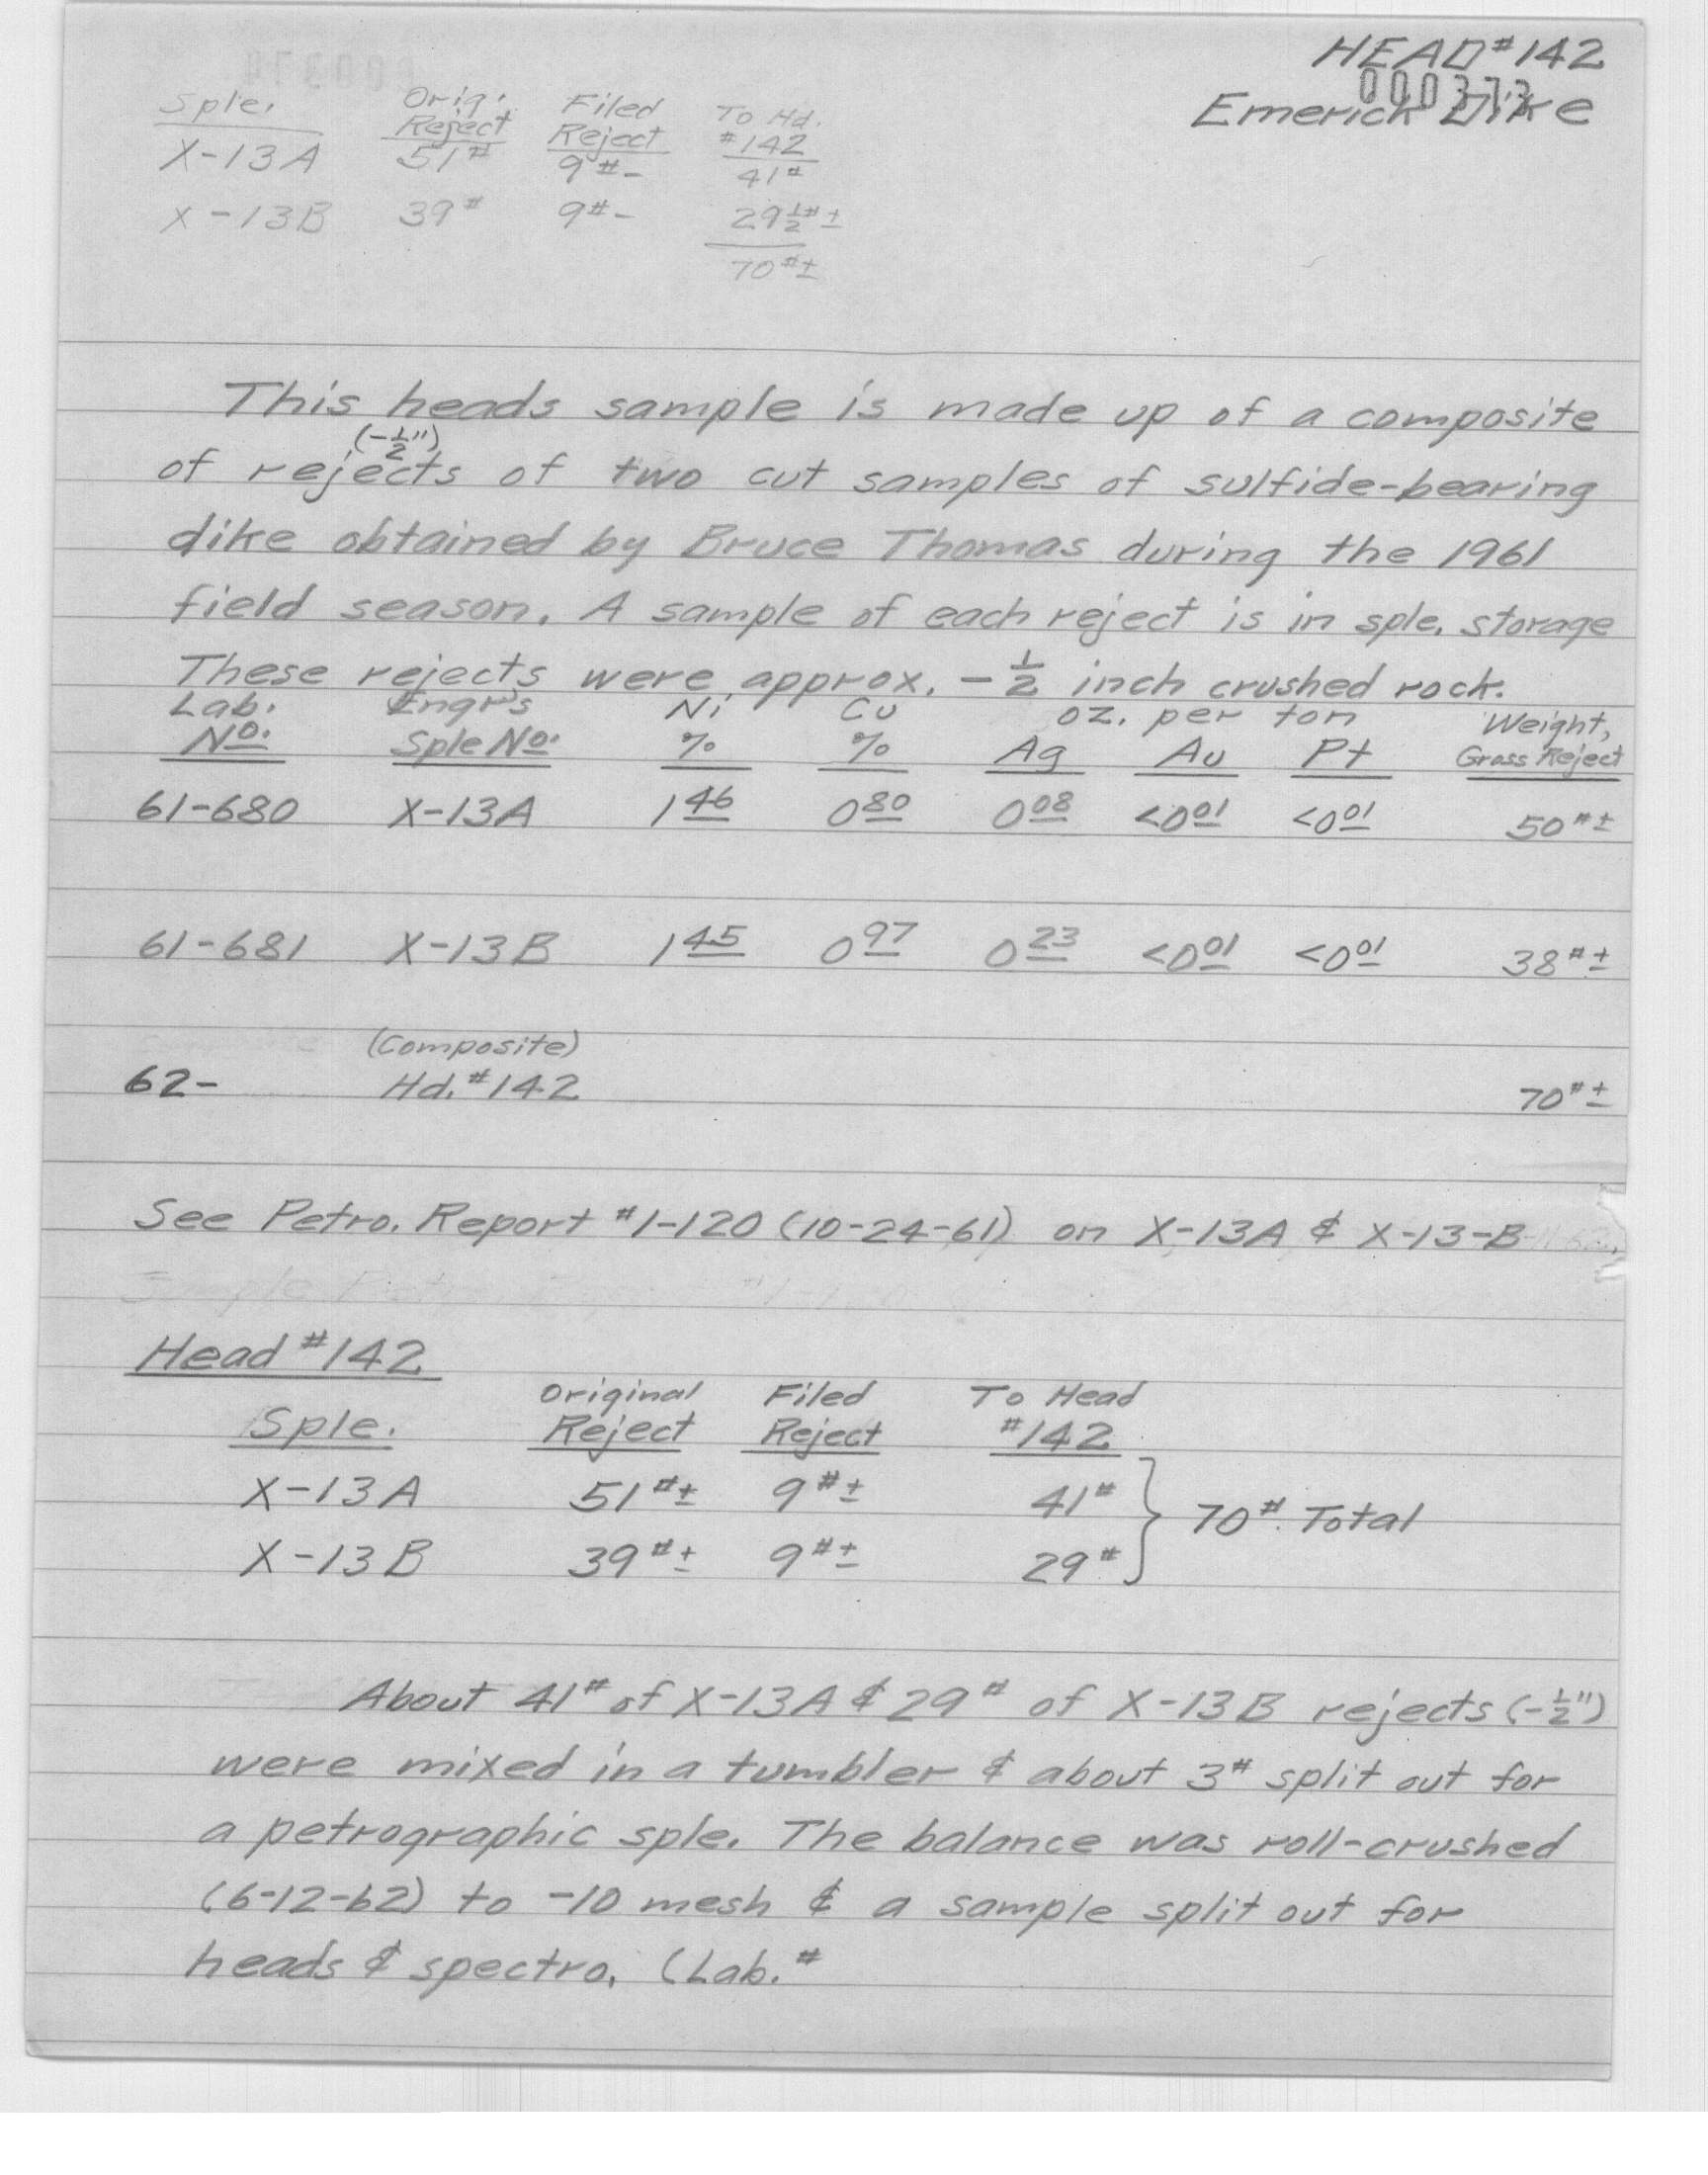 HEAD #142
000373
Emerick Dike
Sple. Orig. Reject Filed Reject To Hd. #142
X-13A 51# 9#- 41#
X-13B 39# 9#- 29½#±
70#±
This heads sample is made up of a composite
(-½")
of rejects of two cut samples of sulfide-bearing
dike obtained by Bruce Thomas during the 1961
field season. A sample of each reject is in sple. storage
These rejects were approx. -½ inch crushed rock.
Lab. Engr's Ni Cu oz. per ton Weight,
No. Sple No. % % Ag Au Pt Gross Reject
61-680 X-13A 1 46 0 80 0 08 <0 01 <0 01 50#±
61-681 X-13B 1 45 0 97 0 23 <0 01 <0 01 38#±
(Composite)
62- Hd. #142 70#±
See Petro. Report #1-120 (10-24-61) on X-13A & X-13-B
Head #142
Original Filed To Head
Sple. Reject Reject #142
X-13A 51#± 9#± 41#
70# Total
X-13B 39#± 9#± 29#
About 41# of X-13A & 29# of X-13B rejects (-½")
were mixed in a tumbler & about 3# split out for
a petrographic sple. The balance was roll-crushed
(6-12-62) to -10 mesh & a sample split out for
heads & spectro. (Lab. #